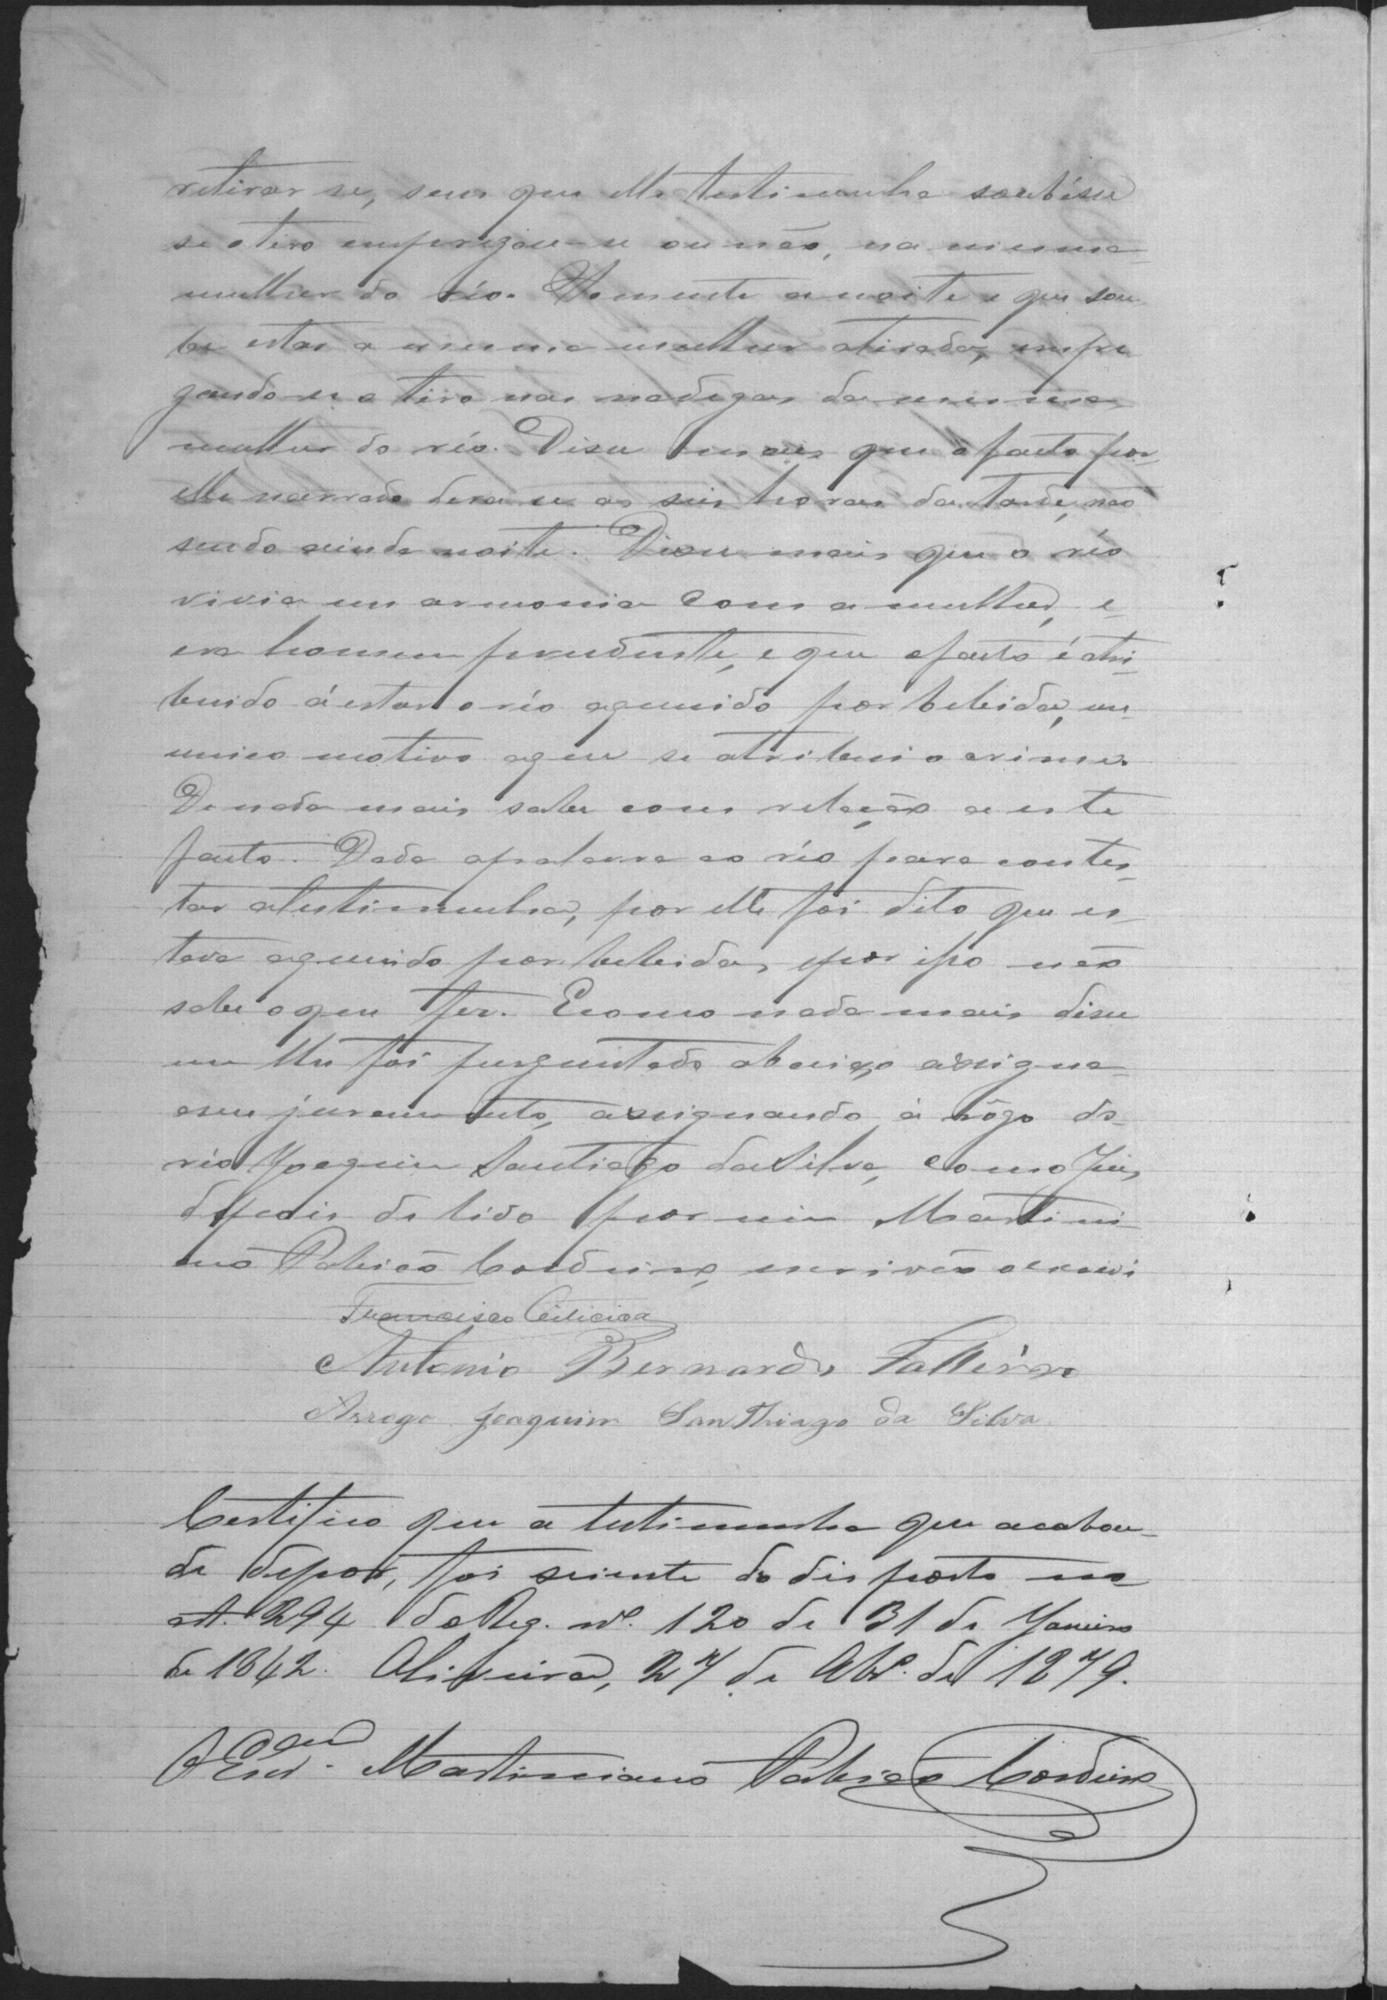 retirar se, sem que elle testimunha soubésse
se o tiro empregou-se ou não, na mesma
mulher do réo. Somente a noite e que sou
be estar a mesma mulher atirada, empre
gando-se o tiro nas nadegas da mesma
mulher do réo. Disse mais que o facto por
elle narrado dera se as seis horas da tarde, não
sendo ainda noite. Disse mais que o réo
vivia em armonia com a mulher, e
era homem prudente, e que o facto é atri-
buido á estar o réo aguuido por bebida, un
unico motivo a que se atribui o crime.
De nada mais sabe com relação a este
facto. Dada a palavra ao réo para contes-
tar a testimunha, por elle foi dito que es
tava aguuido por bebidas, e por isso não
sabe o que fez. E como nada mais disse
nem lhe foi perguntado abaixo assigna
e seu juramento, assignando á rôgo do
réo Joaquim Santiago da Silva, com o Juiz,
depois de lido por mim Martini
ano Patricio Cordeiro, escrivão o escrevi
Francisco
Antonio Bernardo
Arrogo Joaquim SanThiago da Silva.
Certifico que a testimunha que acabou
de depor, foi sciente do disposto no
art. 294 do Reg. nº. 120 de 31 de Janeiro
de 1842. Oliveira, 27 de Abl. de 1879.
O Escrvm. Martiniano Patricio Cordeiro